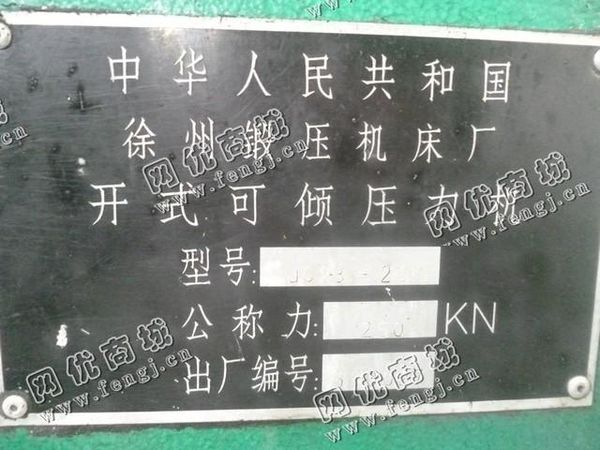 中华人民共和国
徐州锻压机床厂
开式可倾压力机
型号:
公称力: KN
出厂编号:
网优商城
www.fengj.cn
网优商城
www.fengj.cn
网优商城
www.fengj.cn
网优商城
www.fengj.cn
网优商城
www.fengj.cn